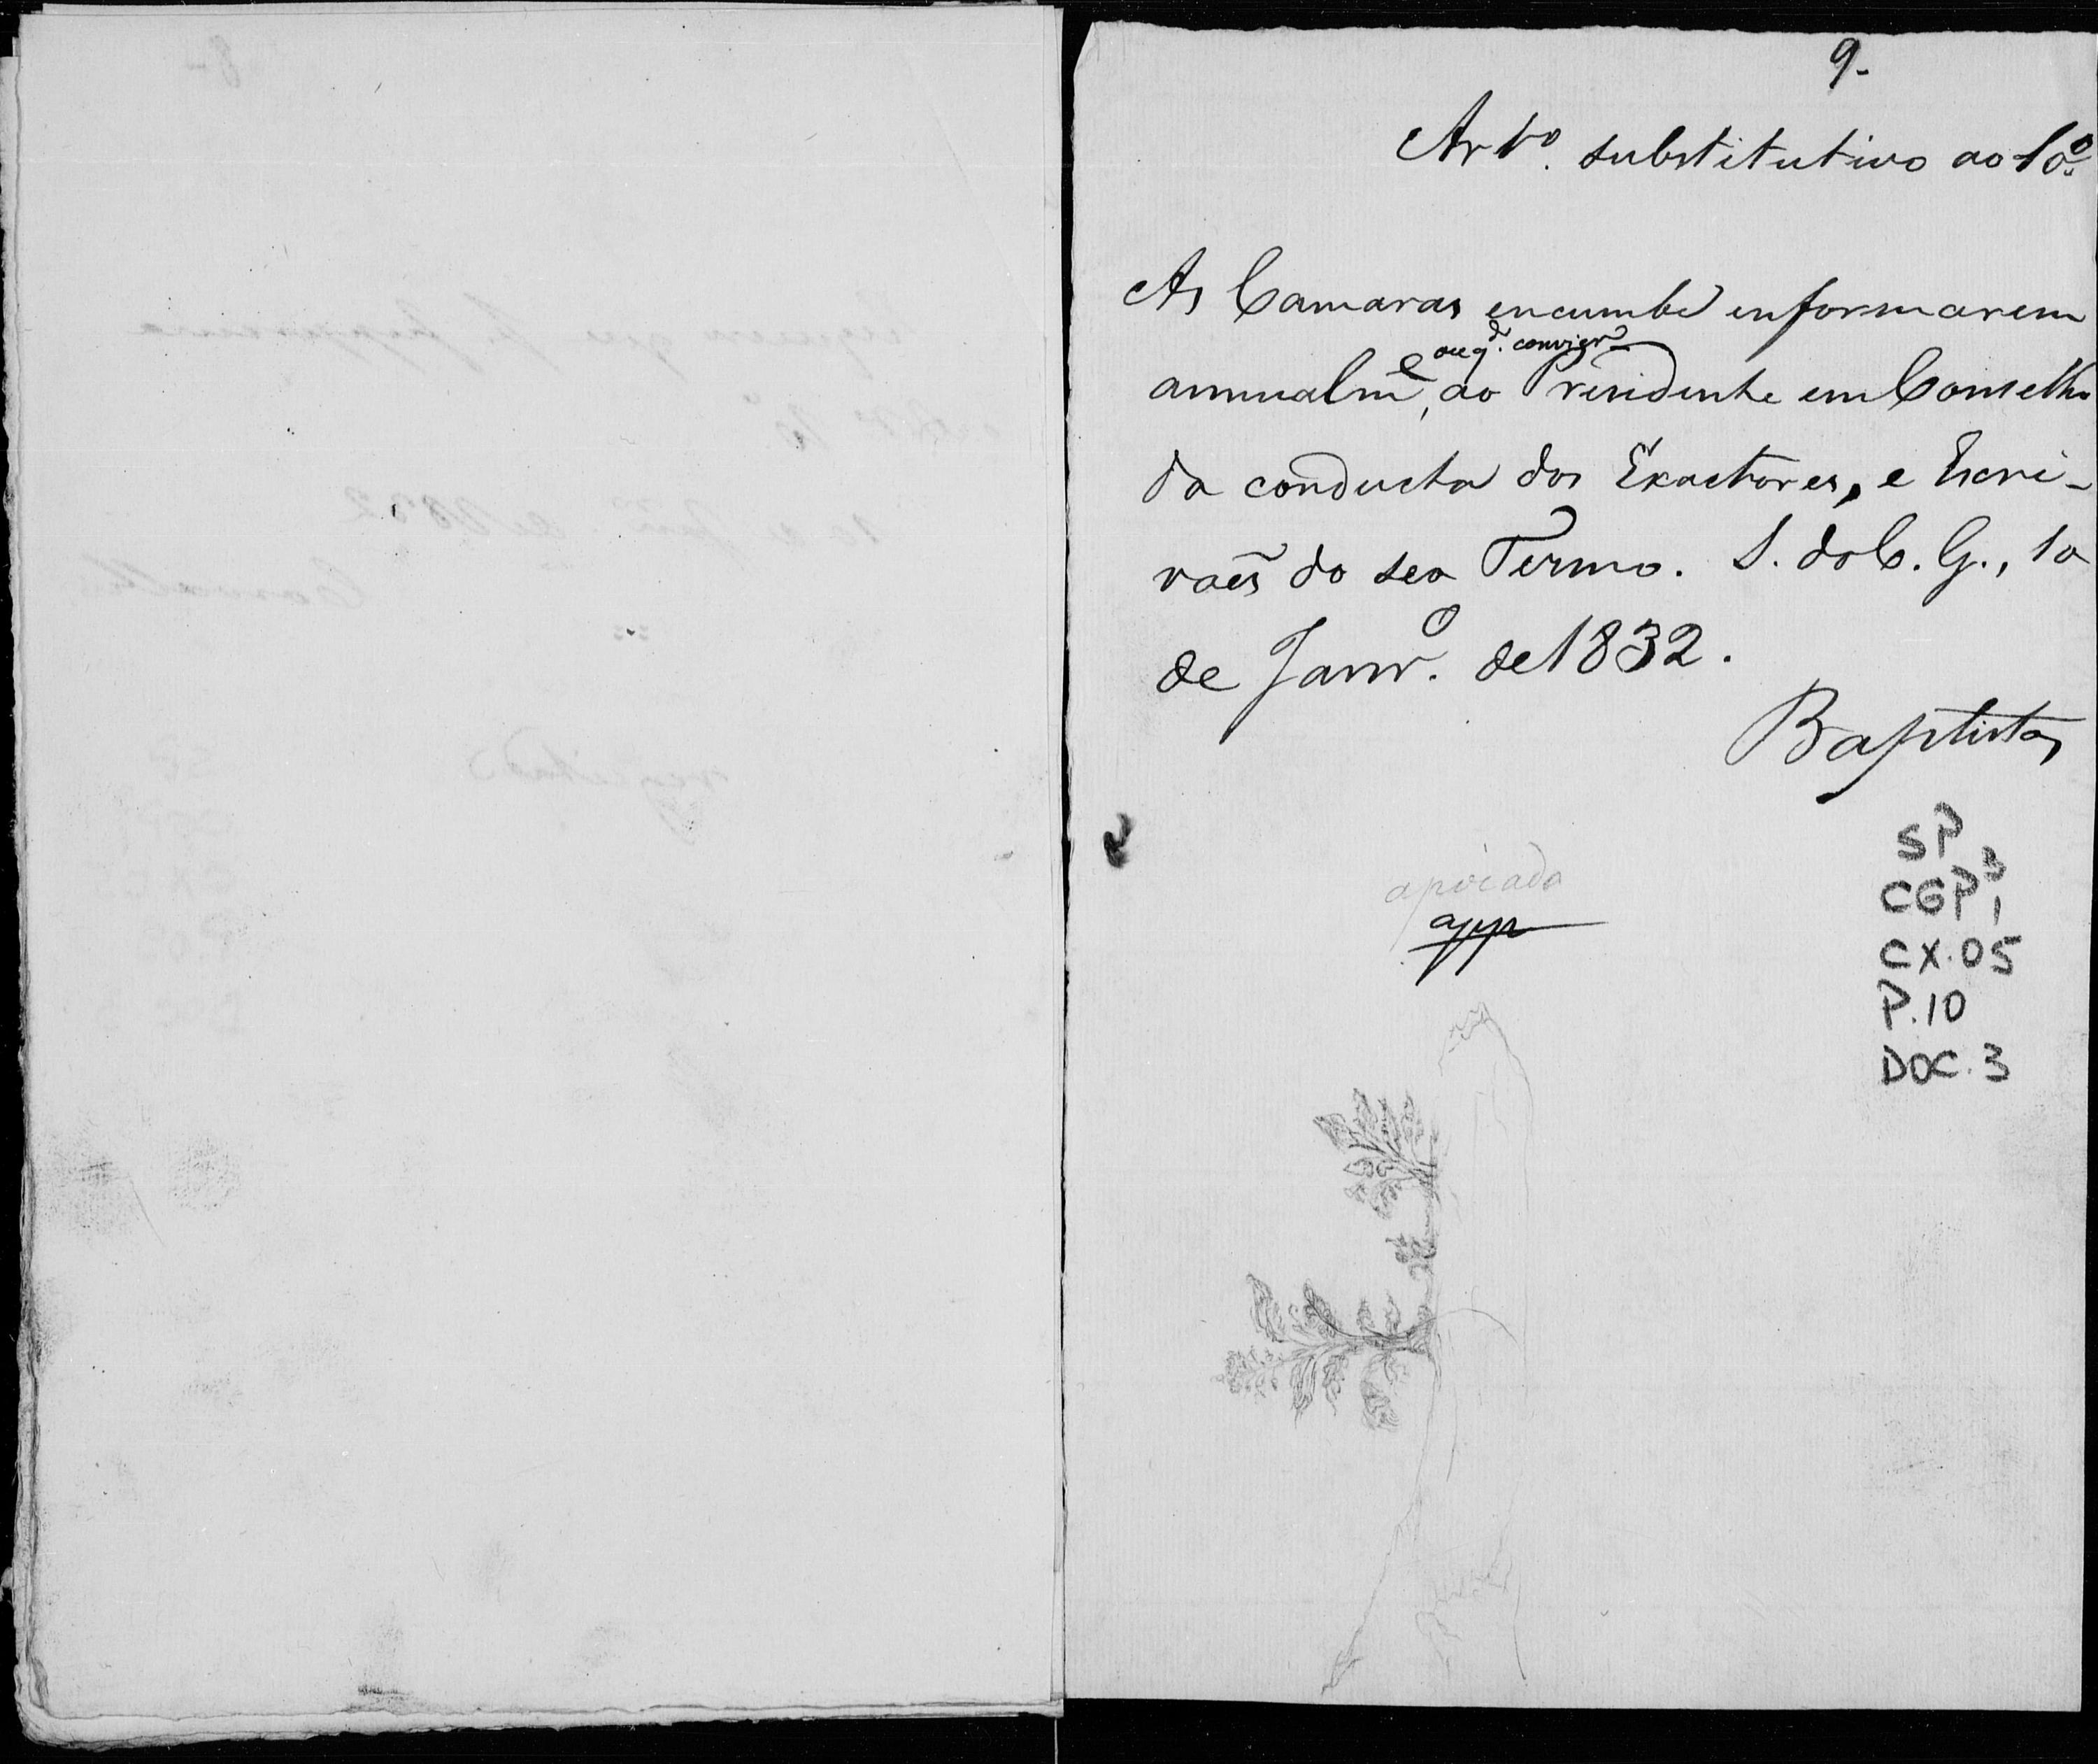 9-
Artº. substitutivo ao 10º.
As Camaras encumbe informarem
ou qdo. convier
annualme, ao Presidente em Conselho
da conducta dos Exactores, e Escri-
vaẽs do seo Termo. S. do C. G., 10
de Janrº. de 1832.
Baptista
apoiada
app
SP
CGP1
CX.05
P.10
DOC.3